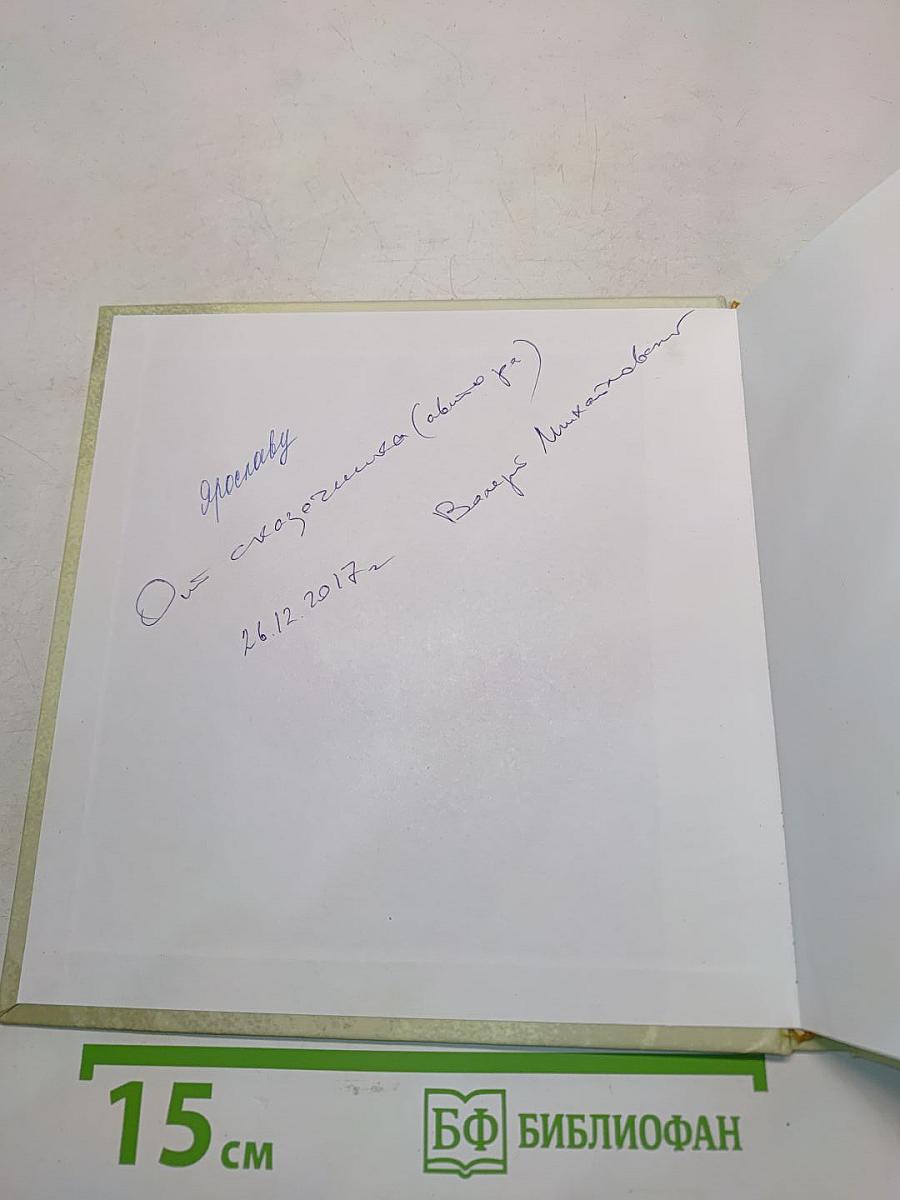 Ярославу
От сказочника (автора)
Валерий Михайловский
26.12.2017г
15 см
БФ БИБЛИОФАН